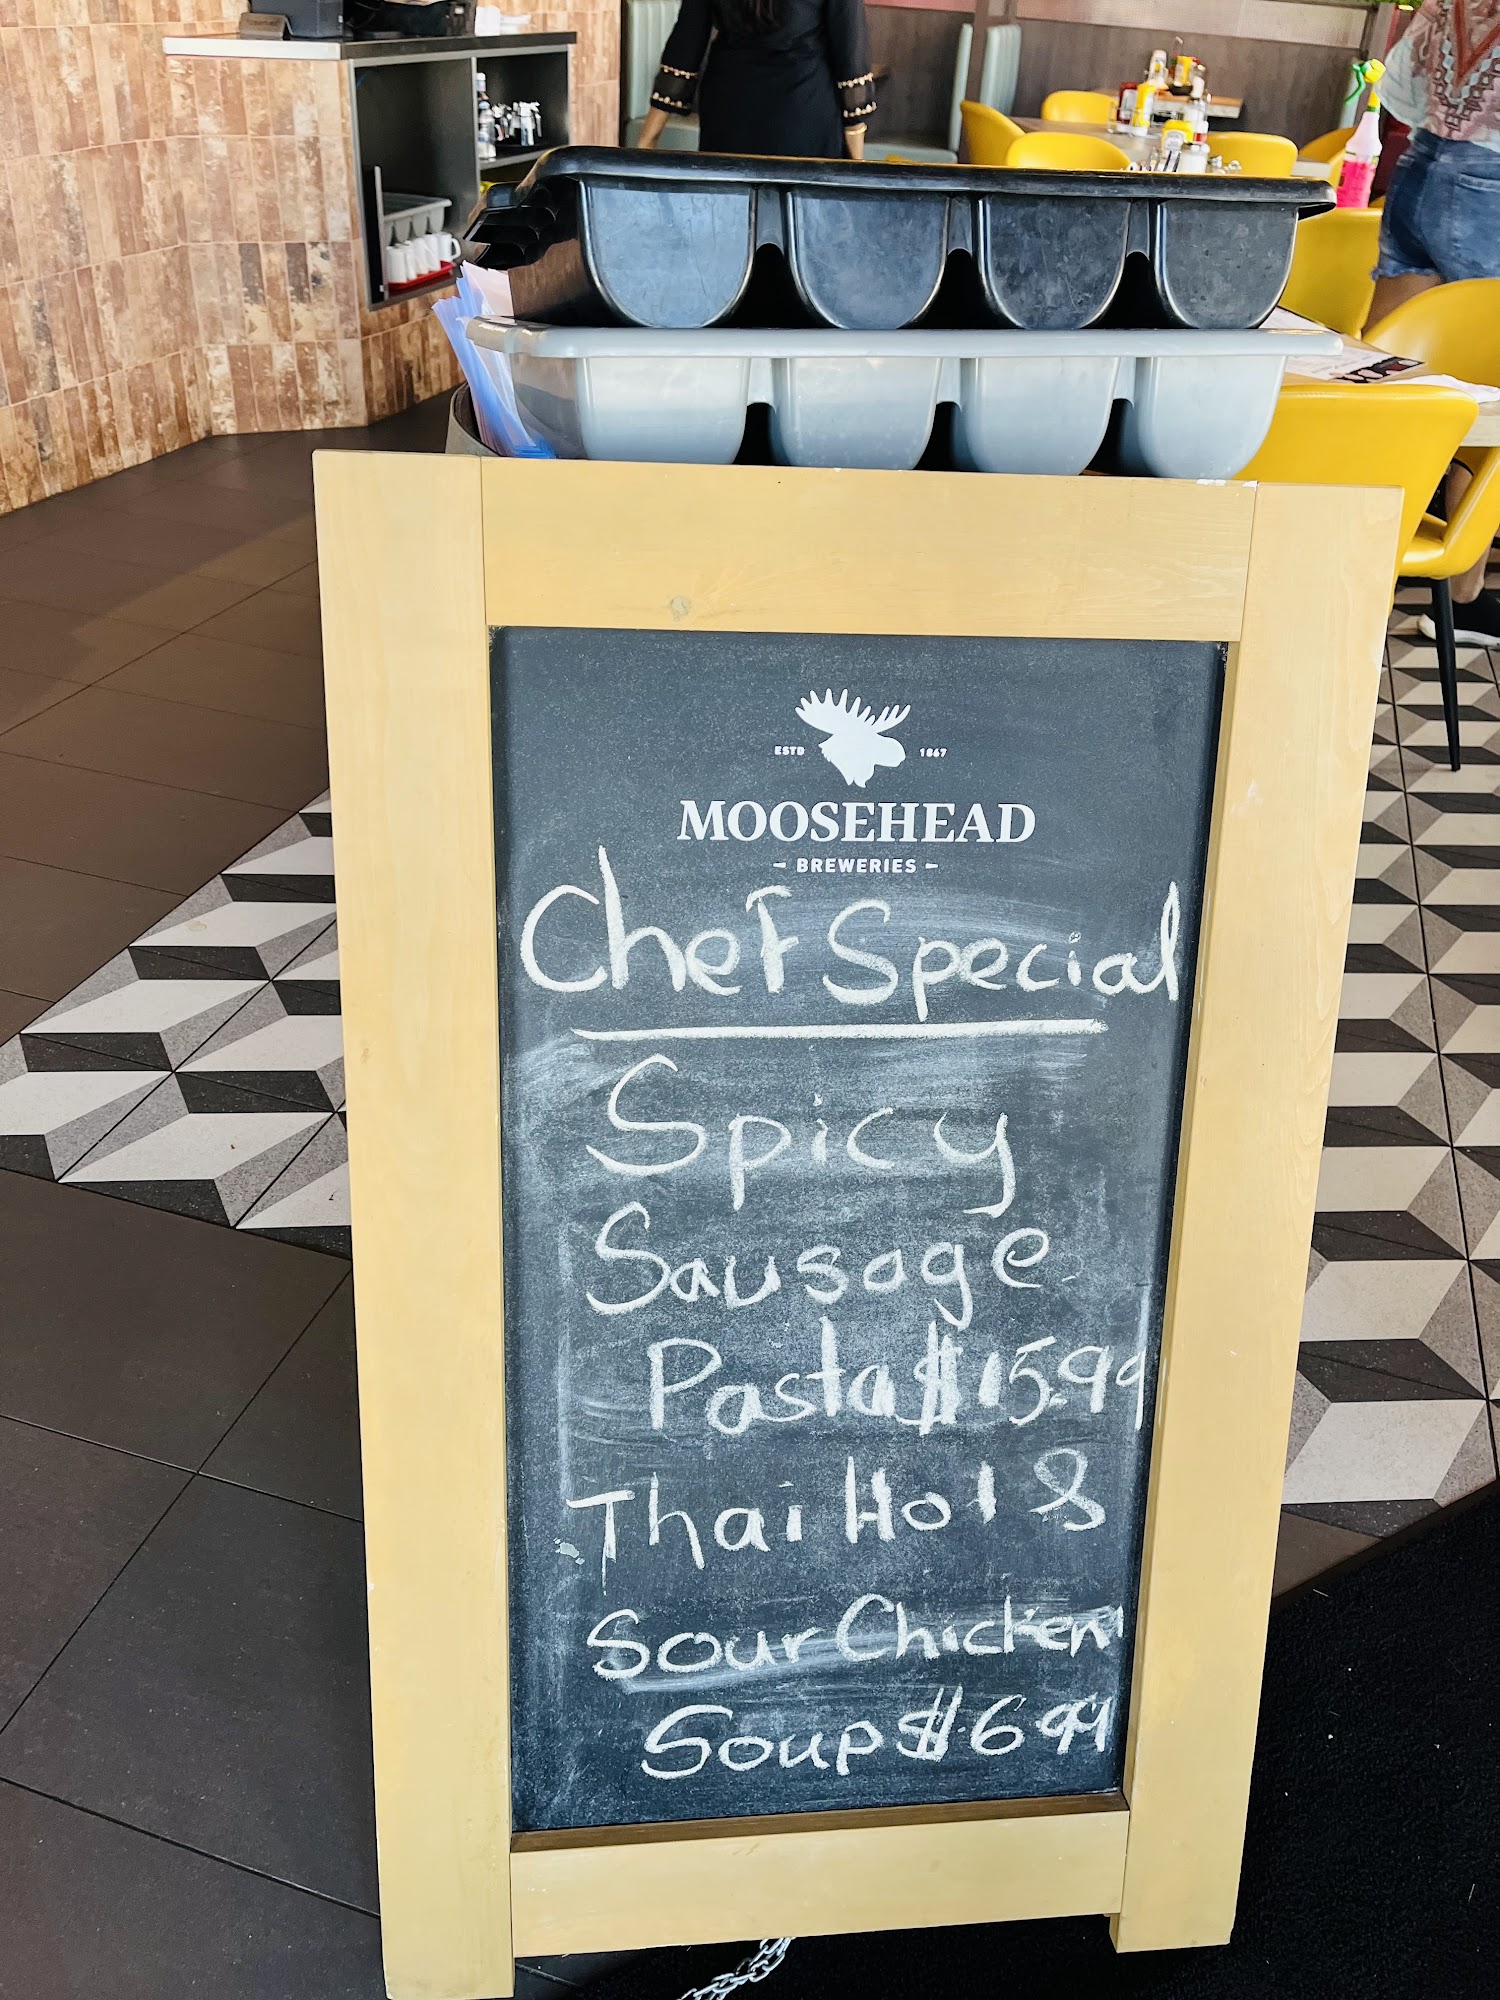 ESTD 1867
MOOSEHEAD
- BREWERIES -
Chef Special
Spicy
Sausage
Pasta $15.99
Thai Hot &
Sour Chicken
Soup $6.99